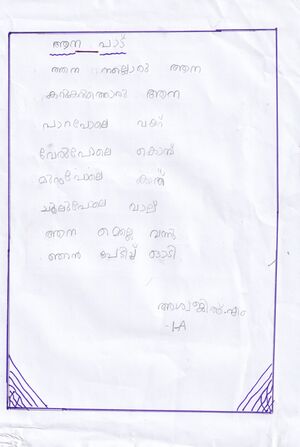 ആന പാട്
ആന നല്ലൊരു ആന
കറുകറുത്തൊരു ആന
പാറപോലെ വയറ്
വേൽപോലെ കൊമ്പ്
മുറംപോലെ
ചൂലുപോലെ വാല്
ആന മെല്ലെ വന്നു
ഞാൻ പേടിച്ച് ഓടി
അശ്വജിത്ത്.എം
1-A